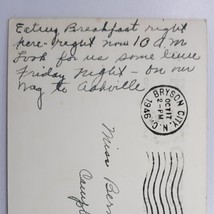 Eating Breakfast right
here - right now 10 A.M
Look for us some time
Friday Night - on our
way to Ashville
BRYSON CITY, N.C.
OCT 17
2-PM
1946
Miss Ber
Camp